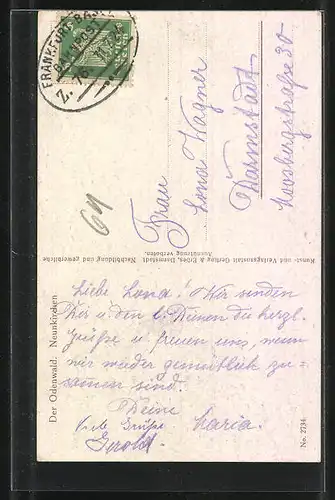 FRANKFURT BASEL
BAHNPOST
Z. 76
64
Frau
Lona Wagner
Darmstadt
Moosbergstraße 30
Kunst- und Verlagsanstalt Gerling & Erbes, Darmstadt Nachbildung und gewerbliche
Ausnutzung verboten.
Der Odenwald. Neunkirchen
Liebe Lona! Wir senden
Dir u. den l. Deinen die herzl.
Grüße u. freuen uns, wenn
wir wieder gemütlich zu-
samen sind.
Deine
Maria.
Grüße
Gerold.
No. 2734